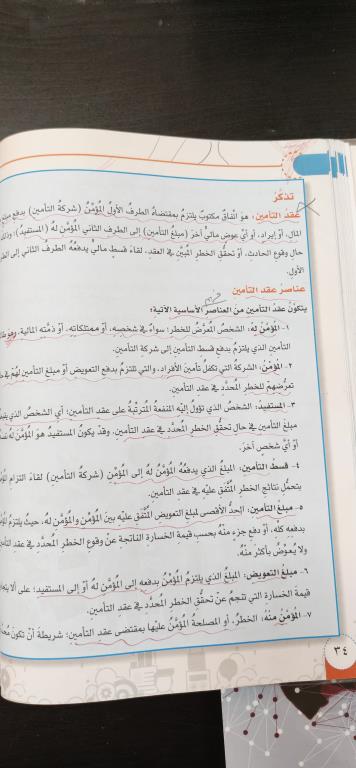 تذكّر
عقد التأمين: هو اتفاق مكتوب يلتزم بمقتضاه الطرف الأول المُؤَمِّن (شركة التأمين) بدفع مبلغ
المال، أو إيراد، أو أيّ عوض ماليّ آخر (مبلغ التأمين) إلى الطرف الثاني المُؤَمَّن له (المستفيد)؛
حال وقوع الحادث، أو تحقّق الخطر المبيّن في العقد، لقاء قسط ماليّ يدفعه الطرف الثاني إلى
الأول.
عناصر عقد التأمين
يتكوّن عقد التأمين من العناصر الأساسية الآتية:
١- المُؤَمَّن له: الشخص المُعرَّض للخطر؛ سواءً في شخصِهِ، أو ممتلكاتِهِ، أو ذمّتِهِ المالية،
التأمين الذي يلتزم بدفع قسط التأمين إلى شركة التأمين.
٢- المُؤَمِّن: الشركة التي تكفل تأمين الأفراد، والتي تلتزم بدفع التعويض أو مبلغ التأمين لهم في
تعرّضهم للخطر المحدد في عقد التأمين.
٣- المستفيد: الشخص الذي تؤول إليه المنفعة المُترتبة على عقد التأمين؛ أي الشخص الذي
مبلغ التأمين في حال تحقّق الخطر المُحدد في عقد التأمين. وقد يكون المستفيد هو المُؤَمَّن له
أو أيّ شخص آخر.
٤- قسط التأمين: المبلغ الذي يدفعه المُؤَمَّن له إلى المُؤَمِّن (شركة التأمين) لقاء التزام
بتحمّل نتائج الخطر المُتّفق عليه في عقد التأمين.
٥- مبلغ التأمين: الحدّ الأقصى لمبلغ التعويض المُتّفق عليه بين المُؤَمِّن والمُؤَمَّن له، حيث يلتزم
بدفعه كلّه، أو دفع جزء منه بحسب قيمة الخسارة الناتجة عن وقوع الخطر المُحدد في عقد
ولا يُعوَّض بأكثر منه.
٦- مبلغ التعويض: المبلغ الذي يلتزم المُؤَمِّن بدفعه إلى المُؤَمَّن له أو إلى المستفيد؛ على ألا
قيمة الخسارة التي تنجم عن تحقّق الخطر المُحدد في عقد التأمين.
٧- المُؤَمَّن منه: الخطر، أو المصلحة المُؤَمَّن عليها بمقتضى عقد التأمين؛ شريطة أنْ تكون
٣٤